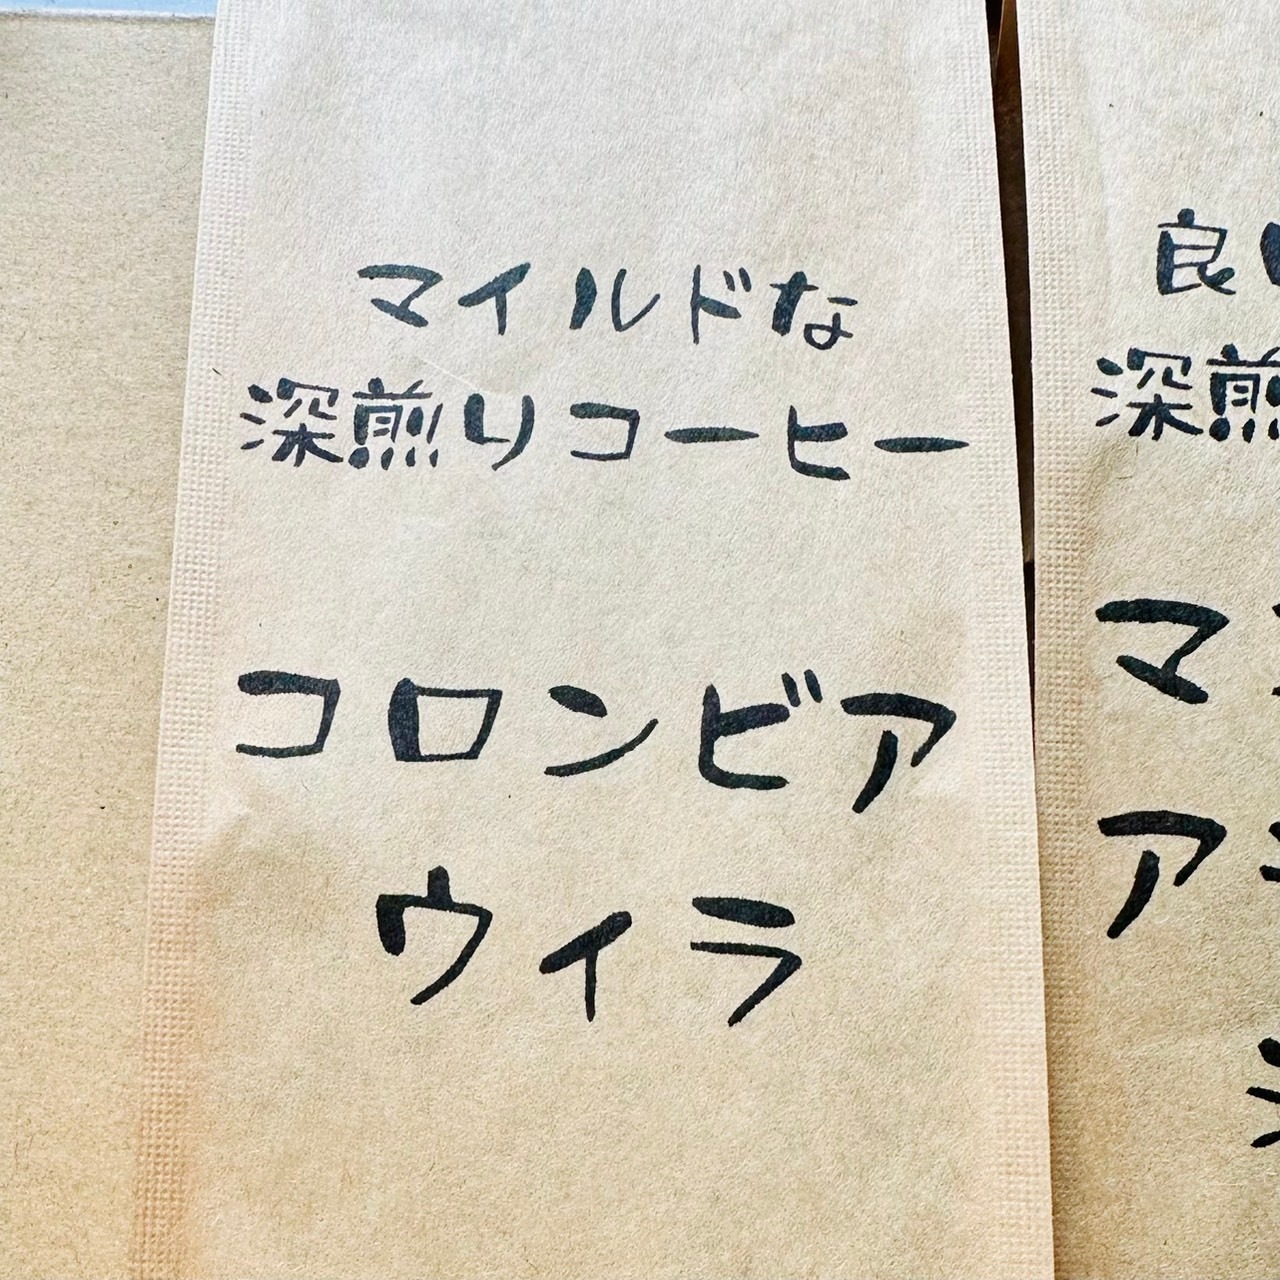 マイルドな
深煎りコーヒー
コロンビア
ウィラ
良い
深煎
マ
ア